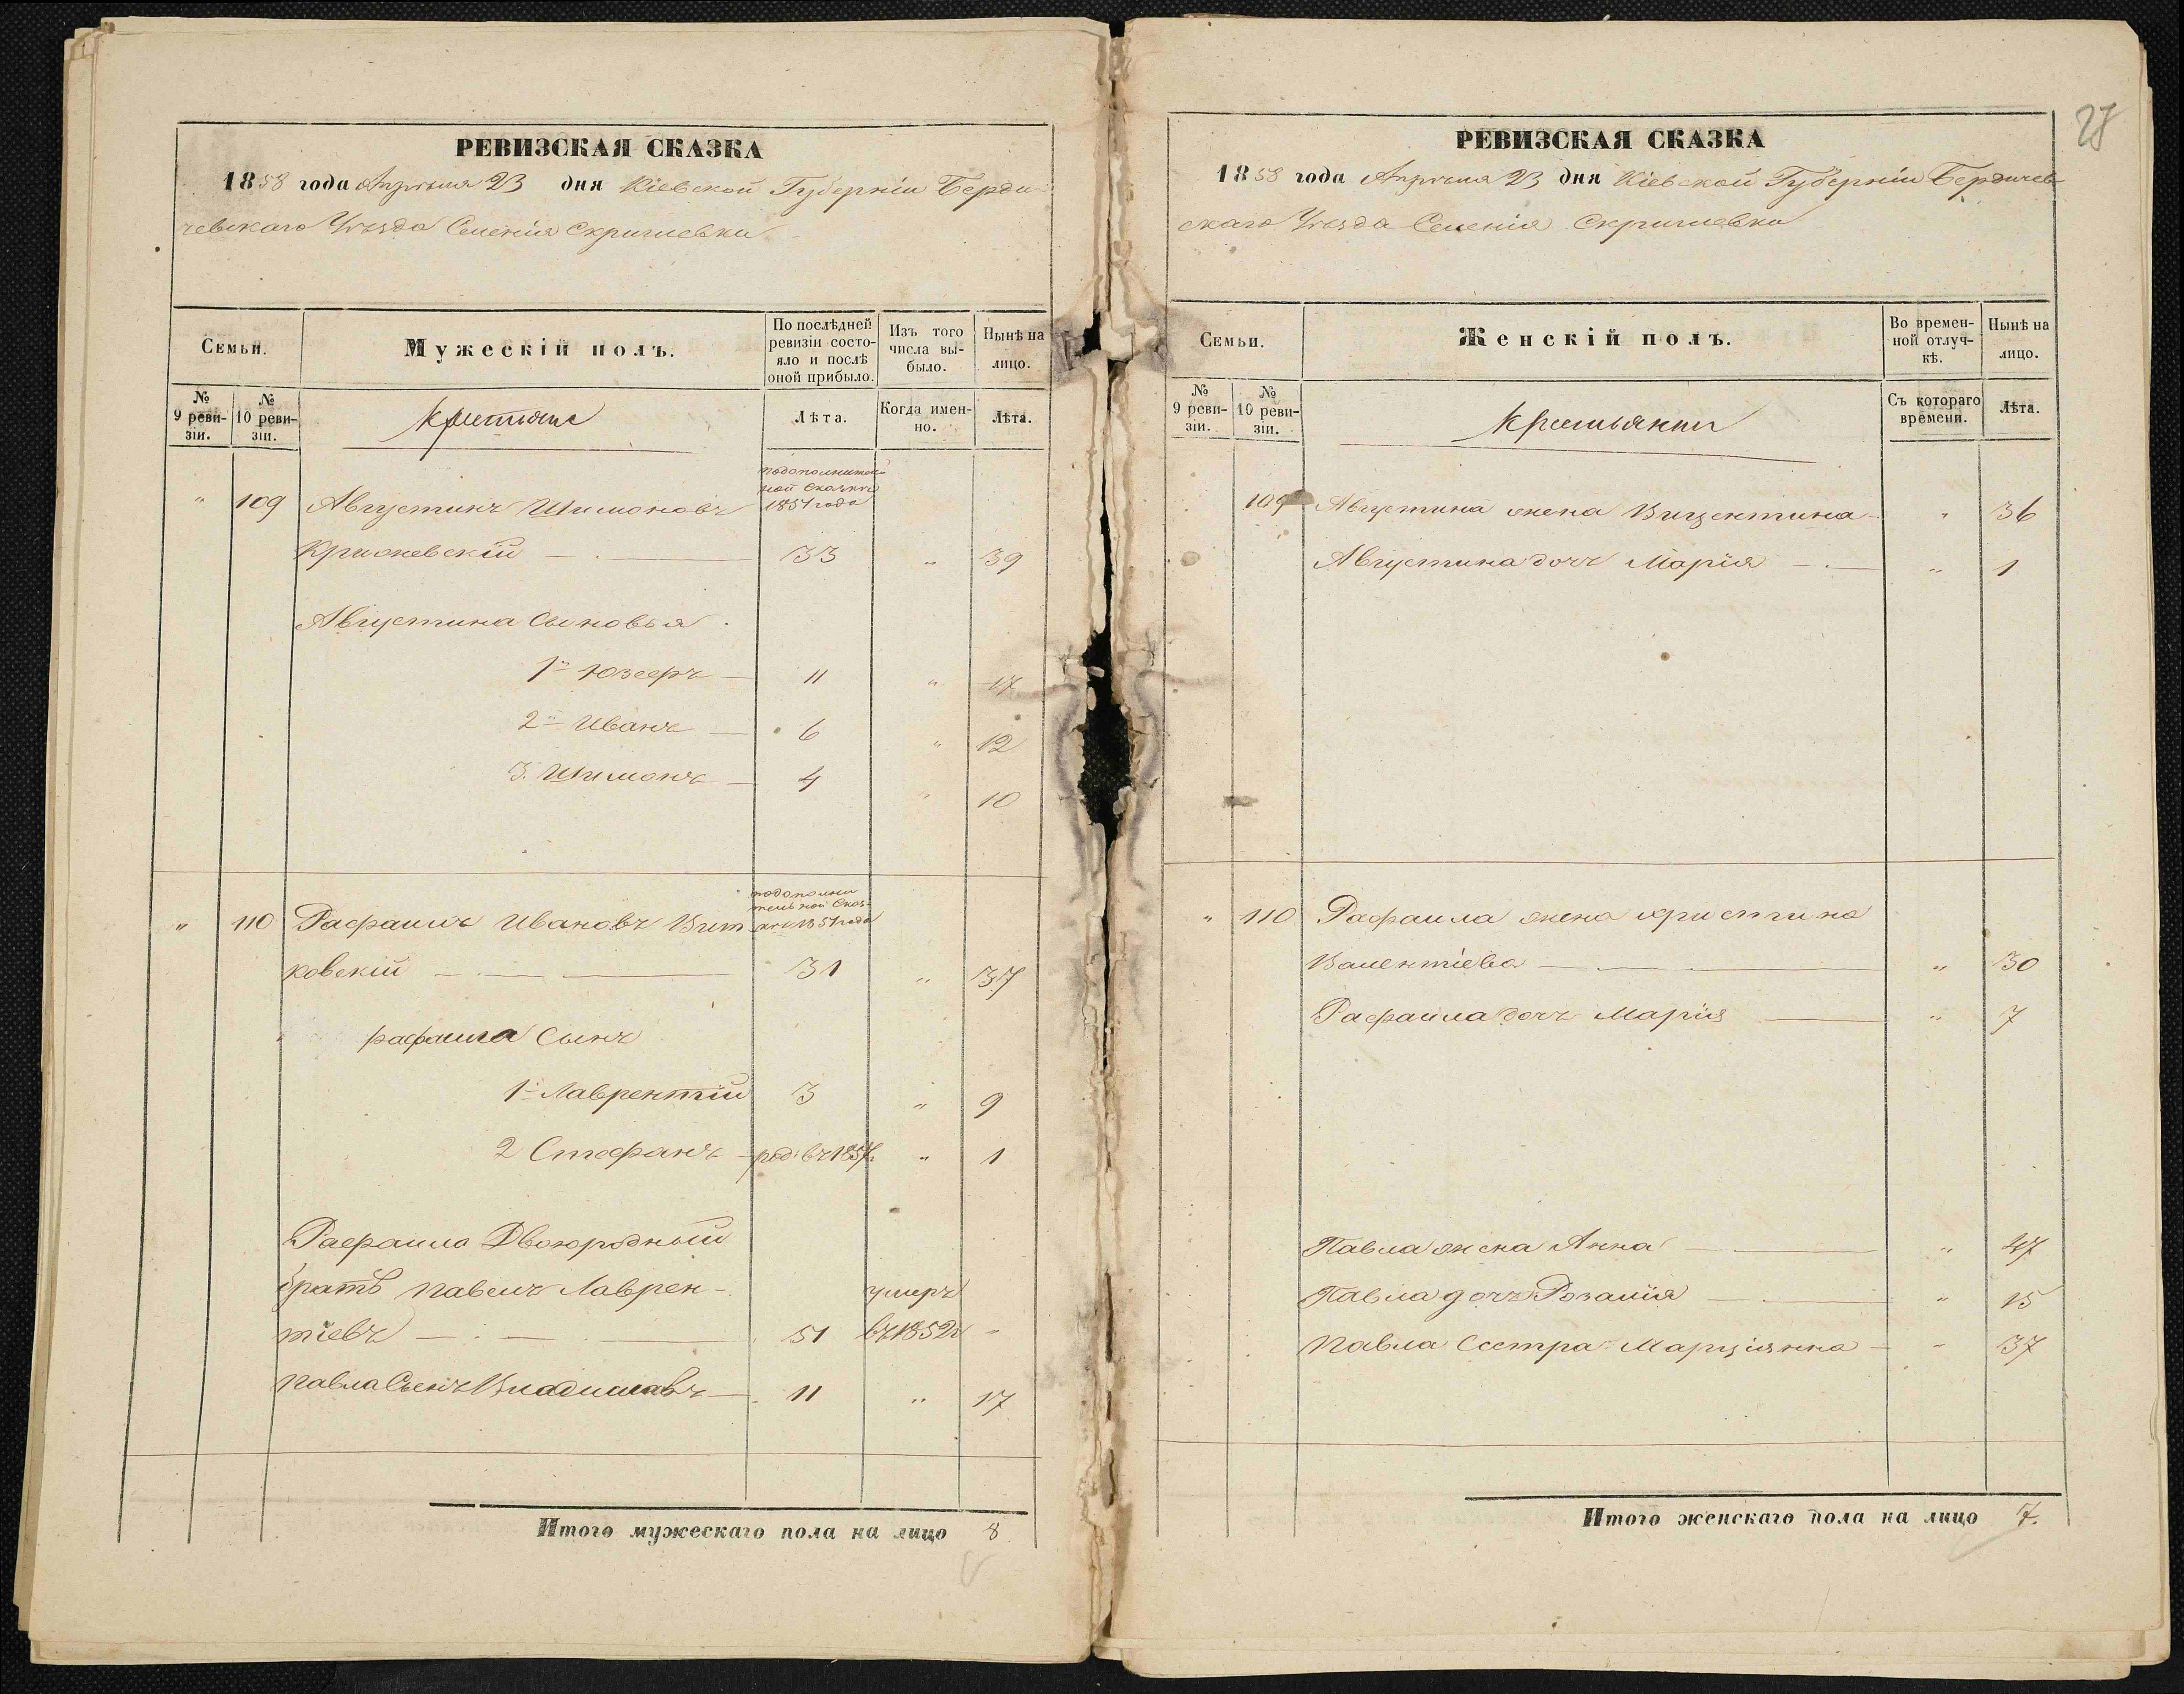 РЕВИЗСКАЯ СКАЗКА
1858 года Апрѣля 23 дня Кіевской Губерніи Берди-
чевскаго Уѣзда Селенія Скригилевки
Семьи.
Мужескій полъ.
По послѣдней ревизіи состояло и послѣ оной прибыло.
Изъ того числа выбыло.
Нынѣ на лицо.
№ 9 ревизіи.
№ 10 ревизіи.
Крестьяне
Лѣта.
Когда именно.
Лѣта.
подополнитель-
ной Сказкѣ
" 109 Августинъ Шимоновъ 1851 года
Крижевскій 33 " 39
Августина Сыновья.
1й Юзефъ 11 " 17
2й Иванъ 6 " 12
3. Шимонъ 4 " 10
подополни
тельной Сказ-
" 110 Рафаилъ Ивановъ Вит- кѣ 1851 года
ковскій 31 " 37
рафаила Сынъ
1й Лаврентій 3 " 9
2 Стефанъ род: въ 1857г. " 1
Рафаила Двоюродный
братъ павелъ Лаврен- умеръ
тіевъ 51 въ 1852г "
павла Сынъ Владиславъ 11 " 17
Итого мужескаго пола на лицо 8
РЕВИЗСКАЯ СКАЗКА
1858 года Апрѣля 23 дня Кіевской Губерніи Бердичев-
скаго Уѣзда Селенія Скригилевки
Семьи.
Женскій полъ.
Во временной отлучкѣ.
Нынѣ на лицо.
№ 9 ревизіи.
№ 10 ревизіи.
Крестьянки
Съ котораго времени.
Лѣта.
109 Августина жена Вицентина " 36
Августина дочь Марія " 1
" 110 Рафаила жена христина
Валентіева " 30
Рафаила дочь Марія " 7
Павла жена Анна " 47
Павла дочь Розалія " 15
Павла Сестра Марціянна " 37
Итого женскаго пола на лицо 7.